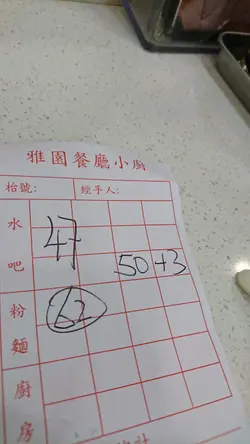 雅園餐廳小廚
枱號: 經手人:
水
47
吧
50+3
粉
62
麵
廚
房